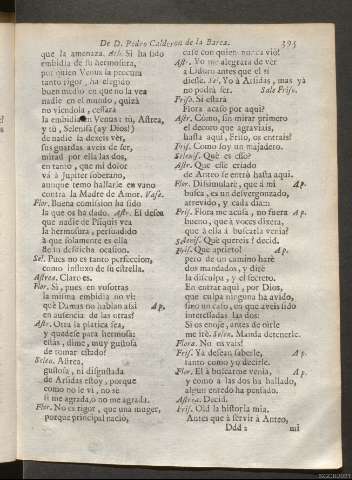 De D. Pedro Calderon de la Barca.
395
que la amenaza. Ast. Si ha sido
embidia de su hermosura,
por quien Venus la procura
tanto rigor, ha elegido
buen medio en que no la vea
nadie en el mundo, quizà
no viendola, cessarà
la embidia en Venus: tù, Astrea,
y tù, Selenisa (ay Dios!)
de nadie la dexeis vèr,
sus guardas aveis de ser,
mirad por ella las dos,
en tanto, que mi dolor
và à Jupiter soberano,
aunque temo hallarle en vano
contra la Madre de Amor. Vase.
Flor. Buena comission ha sido
la que os ha dado. Astr. El deseo
que nadie de Psiquis vea
la hermosura, persuadido
à que solamente es ella
de su desdicha ocasion.
Sel. Pues no es tanto perfeccion,
como influxo de su estrella.
Astrea. Claro es.
Flor. Si, pues en vosotras
la misma embidia no vì:
què Damas no hablan assi Ap.
en ausencia de las otras!
Astr. Otra la platica sea,
y quedese para hermosa:
estàs, dime, muy gustosa
de tomar estado?
Selen. Astrea,
gustosa, ni disgustada
de Arsidas estoy, porque
como no le vì, no sè
si me agrada, ò no me agrada.
Flor. No es rigor, que una muger,
porque principal naciò,
case con quien nunca viò!
Astr. Yo me alegrara de ver
à Lidoro antes que el sì
diesse. Sel. Yo à Arsidas, mas ya
no podrà ser. Sale Friso.
Friso. Si estarà
Flora acaso por aqui?
Astr. Còmo, sin mirar primero
el decoro que agraviais,
hasta aqui, Friso, os entrais?
Fris. Como soy un majadero.
Selenis. Què es esso?
Astr. Que esse criado
de Anteo se entrò hasta aqui.
Flor. Dissimularè, que à mi Ap.
busca, es un desvergonzado,
atrevido, y cada dia
Fris. Flora me acusa, no fuera Ap.
bueno, que à voces dixera,
que à ella à buscarla venia?
Selenis. Què quereis? decid.
Fris. Què aprieto! Ap.
pero de un camino harè
dos mandados, y dirè
la disculpa, y el secreto.
En entrar aqui, por Dios,
que culpa ninguna ha avido,
sino un caso, en que aveis sido
interessadas las dos:
Si os enoje, antes de oirle
me irè. Selen. Manda detenerle.
Flora. No os vais!
Fris. Ya desean saberle, Ap.
tanto como yo decirle.
Flor. El à buscarme venia, Ap.
y como à las dos ha hallado,
algun enredo ha pensado.
Astrea. Decid.
Fris. Oìd la historia mia.
Antes que à servir à Anteo,
Ddd 2
mi